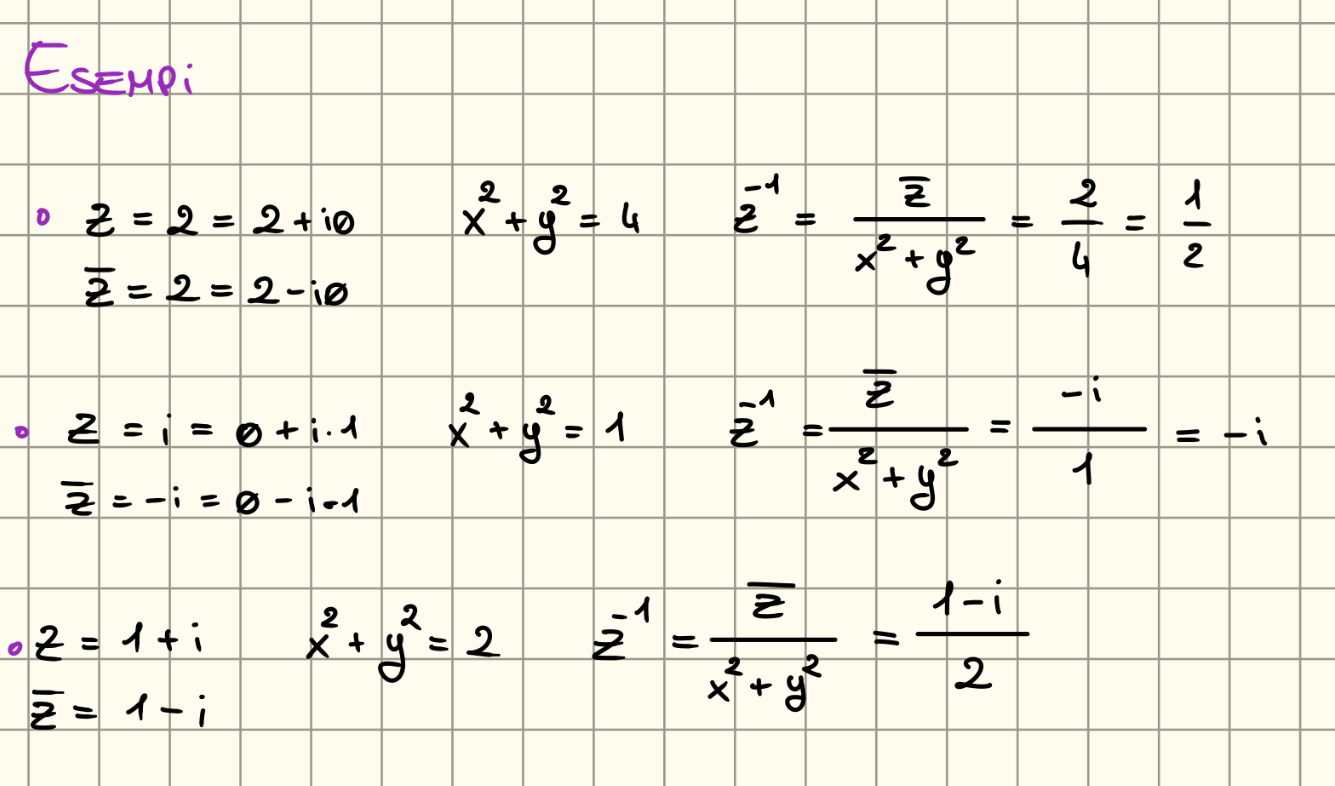 Esempi
∘ z = 2 = 2 + i0    x² + y² = 4    z⁻¹ = z̅ / (x² + y²) = 2/4 = 1/2
z̅ = 2 = 2 - i0
∘ z = i = 0 + i · 1    x² + y² = 1    z⁻¹ = z̅ / (x² + y²) = -i/1 = -i
z̅ = -i = 0 - i · 1
∘ z = 1 + i    x² + y² = 2    z⁻¹ = z̅ / (x² + y²) = (1 - i)/2
z̅ = 1 - i